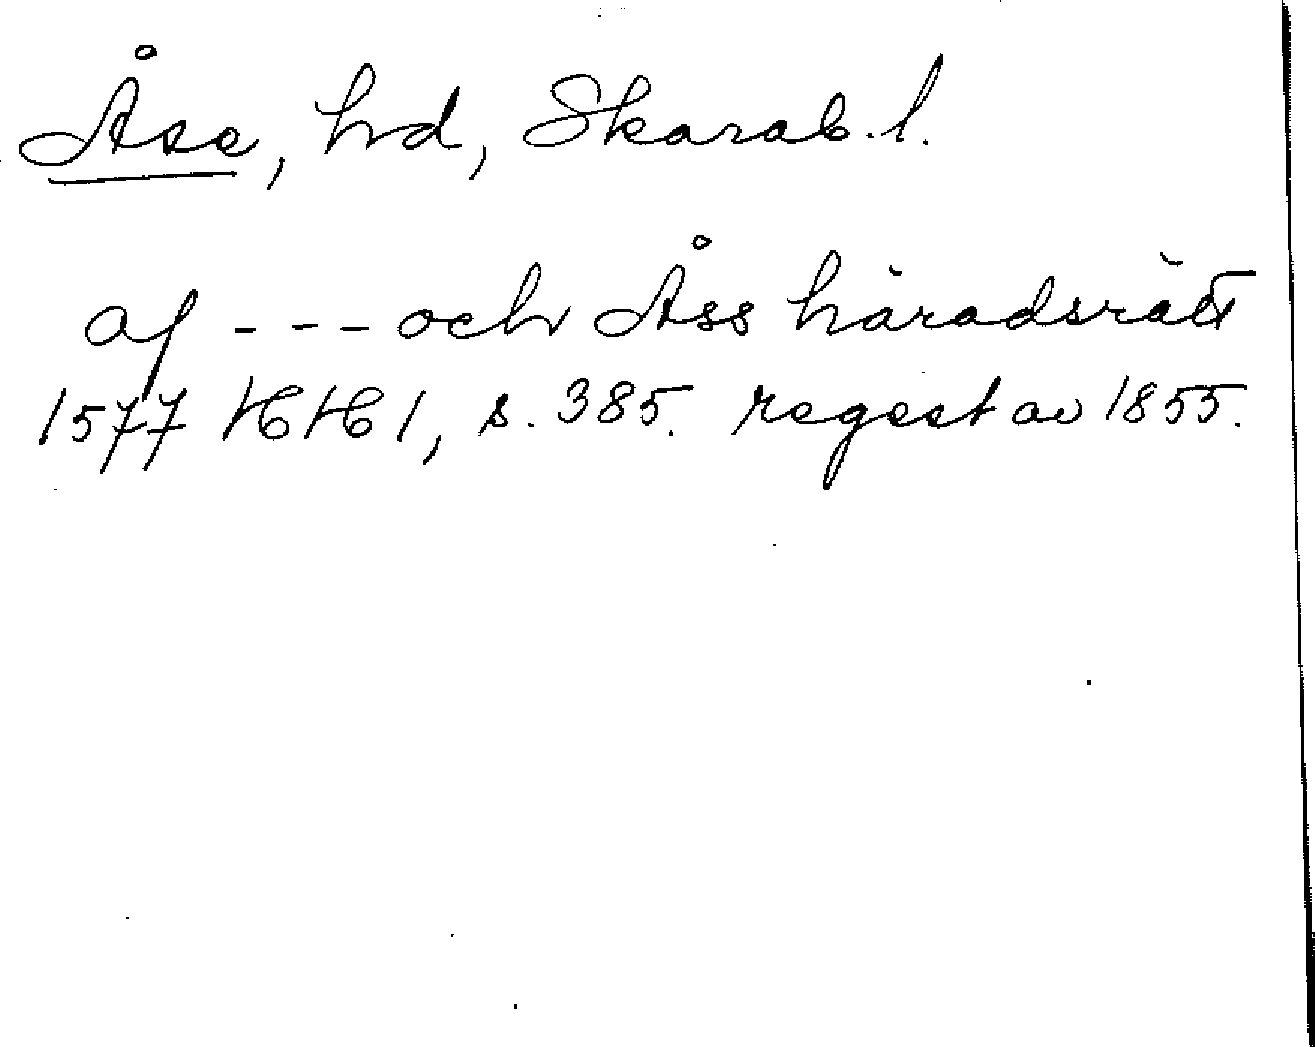 Åse, hd, Skarab. l.
af --- och Åss häradsrätt
1577 HH 1, s. 385. regest av 1855.